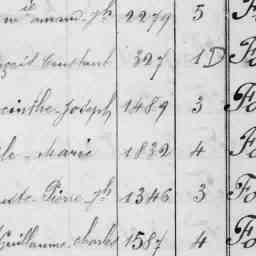 amand jh 2279 5 F
Constant 327 1 D Fo
cinthe Joseph 1489 3 Fo
le Marie 1832 4 Fo
uste Pierre jh 1346 3 Fo
Guillaume Charles 1587 4 Fo